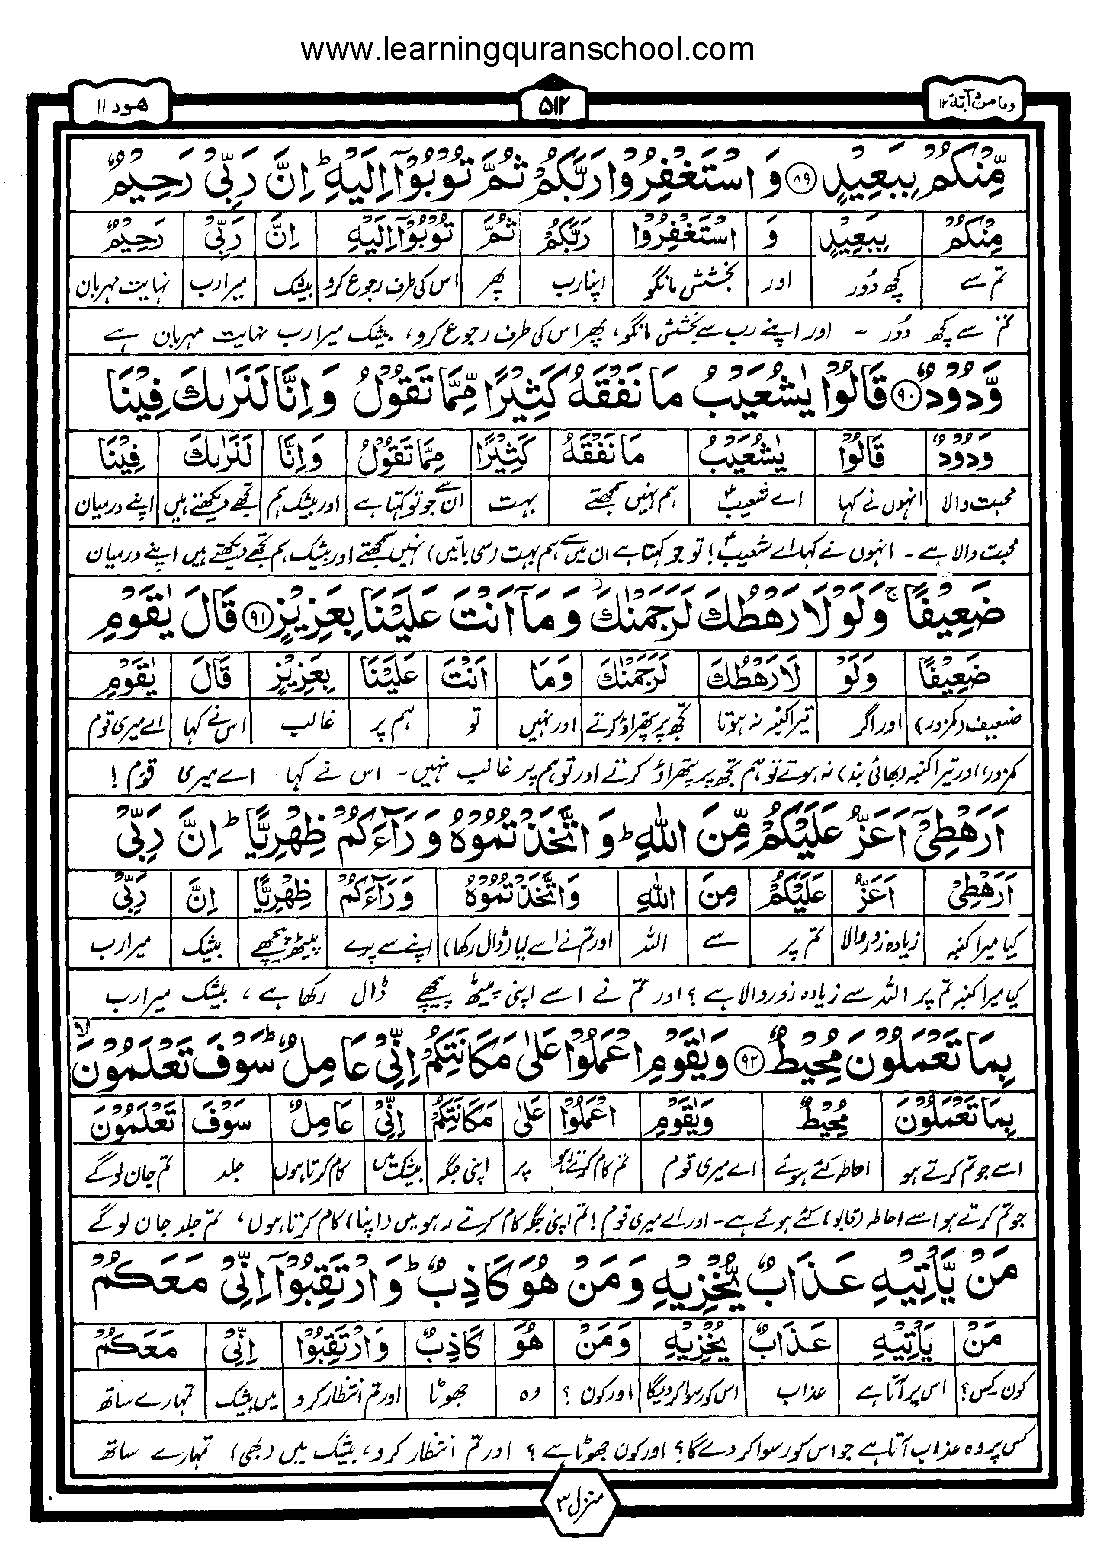 www.learningquranschool.com
ھود ۱۱
۵۱۲
وما من دآبة ۱۲
مِّنْكُمْ بِبَعِيْدٍ ۸۹ وَ اسْتَغْفِرُوْا رَبَّكُمْ ثُمَّ تُوْبُوْۤا اِلَيْهِ ؕ اِنَّ رَبِّيْ رَحِيْمٌ
مِنْكُمْ بِبَعِيْدٍ وَ اسْتَغْفِرُوْا رَبَّكُمْ ثُمَّ تُوْبُوْۤا اِلَيْهِ اِنَّ رَبِّيْ رَحِيْمٌ
تم سے کچھ دُور اور بخشش مانگو اپنا رب پھر اس کی طرف رجوع کرو بیشک میرا رب نہایت مہربان
تم سے کچھ دُور ۔ اور اپنے رب سے بخشش مانگو، پھر اس کی طرف رجوع کرو، بیشک میرا رب نہایت مہربان ہے
وَّدُوْدٌ ۹۰ قَالُوْا يٰشُعَيْبُ مَا نَفْقَهُ كَثِيْرًا مِّمَّا تَقُوْلُ وَ اِنَّا لَنَرٰىكَ فِيْنَا
وَدُوْدٌ قَالُوْا يٰشُعَيْبُ مَا نَفْقَهُ كَثِيْرًا مِّمَّا تَقُوْلُ وَاِنَّا لَنَرٰىكَ فِيْنَا
محبت والا انہوں نے کہا اے شعیبؑ ہم نہیں سمجھتے بہت ان سے جو تو کہتا ہے اور بیشک ہم تجھے دیکھتے ہیں اپنے درمیان
محبت والا ہے ۔ انہوں نے کہا اے شعیبؑ! تو جو کہتا ہے ان میں سے ہم بہت (سی باتیں) نہیں سمجھتے اور بیشک ہم تجھے دیکھتے ہیں اپنے درمیان
ضَعِيْفًا ۚ وَ لَوْ لَا رَهْطُكَ لَرَجَمْنٰكَ ؗ وَ مَاۤ اَنْتَ عَلَيْنَا بِعَزِيْزٍ ۹۱ قَالَ يٰقَوْمِ
ضَعِيْفًا وَلَوْ لَا رَهْطُكَ لَرَجَمْنٰكَ وَمَا اَنْتَ عَلَيْنَا بِعَزِيْزٍ قَالَ يٰقَوْمِ
ضعیف (کمزور) اور اگر تیرا کنبہ نہ ہوتا تجھ پر پتھراؤ کرتے اور نہیں تو ہم پر غالب اس نے کہا اے میری قوم
کمزور! اور تیرا کنبہ (بھائی بند) نہ ہوتے تو ہم تجھ پر پتھراؤ کرتے اور تو ہم پر غالب نہیں ۔ اس نے کہا اے میری قوم !
اَرَهْطِيْۤ اَعَزُّ عَلَيْكُمْ مِّنَ اللّٰهِ ؕ وَ اتَّخَذْتُمُوْهُ وَرَآءَكُمْ ظِهْرِيًّا ؕ اِنَّ رَبِّيْ
اَرَهْطِيْ اَعَزُّ عَلَيْكُمْ مِنَ اللّٰهِ وَاتَّخَذْتُمُوْهُ وَرَآءَكُمْ ظِهْرِيًّا اِنَّ رَبِّيْ
کیا میرا کنبہ زیادہ زور والا تم پر سے اللہ اور تم نے اسے لیا (ڈال رکھا) اپنے سے پرے پیٹھ پیچھے بیشک میرا رب
کیا میرا کنبہ تم پر اللہ سے زیادہ زور والا ہے ؟ اور تم نے اسے اپنی پیٹھ پیچھے ڈال رکھا ہے ، بیشک میرا رب
بِمَا تَعْمَلُوْنَ مُحِيْطٌ ۹۲ وَ يٰقَوْمِ اعْمَلُوْا عَلٰى مَكَانَتِكُمْ اِنِّيْ عَامِلٌ ؕ سَوْفَ تَعْلَمُوْنَ ۙ
بِمَا تَعْمَلُوْنَ مُحِيْطٌ وَيٰقَوْمِ اعْمَلُوْا عَلٰى مَكَانَتِكُمْ اِنِّيْ عَامِلٌ سَوْفَ تَعْلَمُوْنَ
اسے جو تم کرتے ہو احاطہ کئے ہوئے اے میری قوم تم کام کرتے رہو پر اپنی جگہ بیشک میں کام کرتا ہوں جلد تم جان لو گے
جو تم کرتے ہو اسے احاطہ (قابو) کئے ہوئے ہے ۔ اور اے میری قوم! تم اپنی جگہ کام کرتے رہو میں (اپنا) کام کرتا ہوں، تم جلد جان لو گے
مَنْ يَّاْتِيْهِ عَذَابٌ يُّخْزِيْهِ وَ مَنْ هُوَ كَاذِبٌ ؕ وَ ارْتَقِبُوْۤا اِنِّيْ مَعَكُمْ
مَنْ يَاْتِيْهِ عَذَابٌ يُخْزِيْهِ وَمَنْ هُوَ كَاذِبٌ وَارْتَقِبُوْا اِنِّيْ مَعَكُمْ
کون کس؟ اس پر آتا ہے عذاب اس کو رسوا کر دیگا اور کون ؟ وہ جھوٹا اور تم انتظار کرو میں بیشک تمہارے ساتھ
کس پر وہ عذاب آتا ہے جو اس کو رسوا کر دے گا؟ اور کون جھوٹا ہے ؟ اور تم انتظار کرو، بیشک میں (بھی) تمہارے ساتھ
منزل ۳